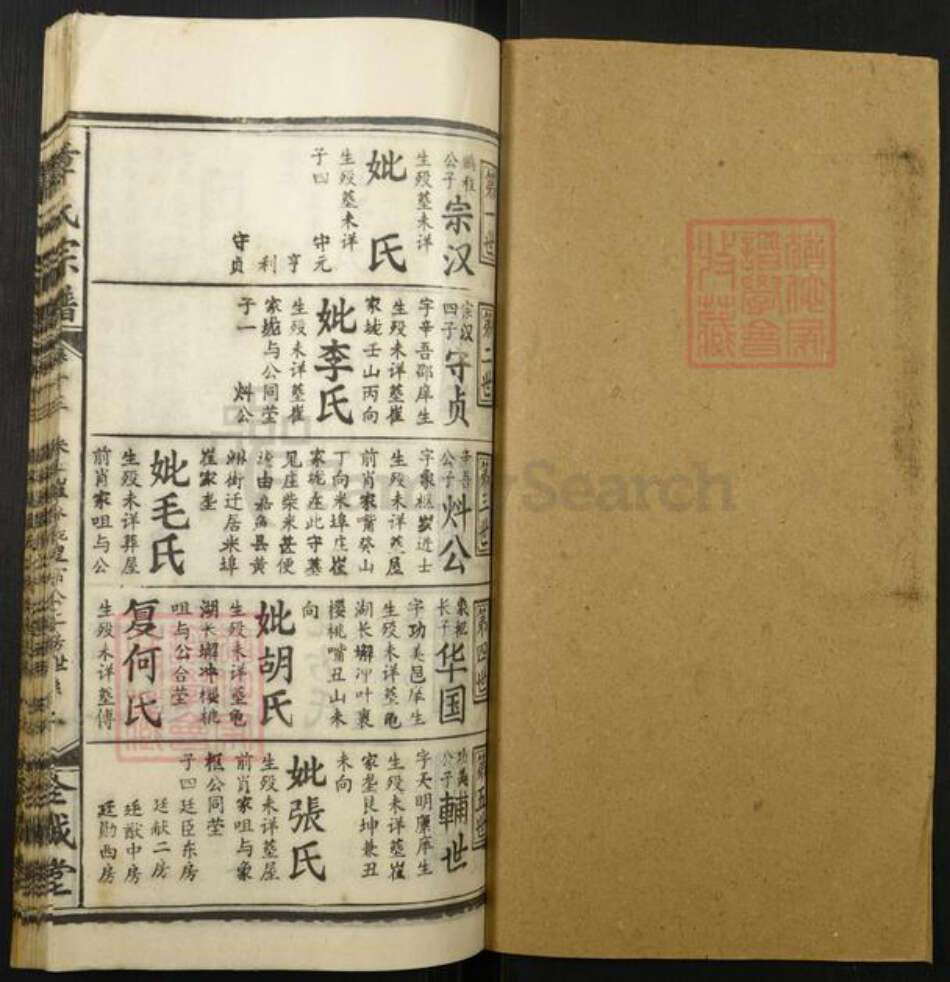 第一世
鹏程
公子
宗汉
生殁墓未详
妣 氏
生殁墓未详
子四 守元
亨
利
守贞
第二世
宗汉
四子
守贞
字辛吾郡庠生
生殁未详墓崔
家垅壬山丙向
妣李氏
生殁未详墓崔
家垅与公同茔
子一 炓公
第三世
辛吾
公子
炓公
生殁未详墓屋
前肖家嘴癸山
丁向米埠庄崔
家垅在此守墓
见庄柴米甚便
遂由嘉鱼县黄
迁居米埠
崔家垄
妣毛氏
生殁未详葬屋
前肖家咀与公
第四世
象枢
长子
华国
字功美邑庠生
生殁未详墓龟
湖长塘冲叶裹
樱桃嘴丑山未
向
妣胡氏
生殁未详墓龟
湖长塘冲樱桃
咀与公合茔
复何氏
生殁未详墓傅
第五世
功美
公子
輔世
字天明廪庠生
生殁未详墓崔
家垄艮坤兼丑
未向
妣張氏
生殁未详墓屋
前肖家咀与象
枢公同茔
子四 廷臣东房
廷献二房
廷猷中房
廷勋西房
章氏宗譜
FamilySearch
譜學會
收藏